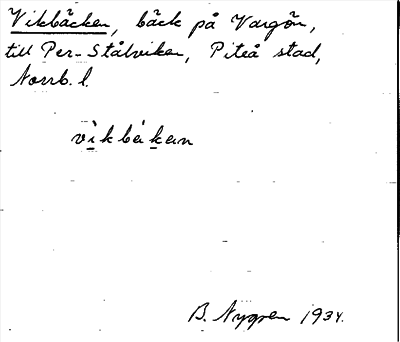 Vikbäcken, bäck på Vargön,
till Per-Stålviken, Piteå stad,
Norrb. l.
B. Nygren 1934.